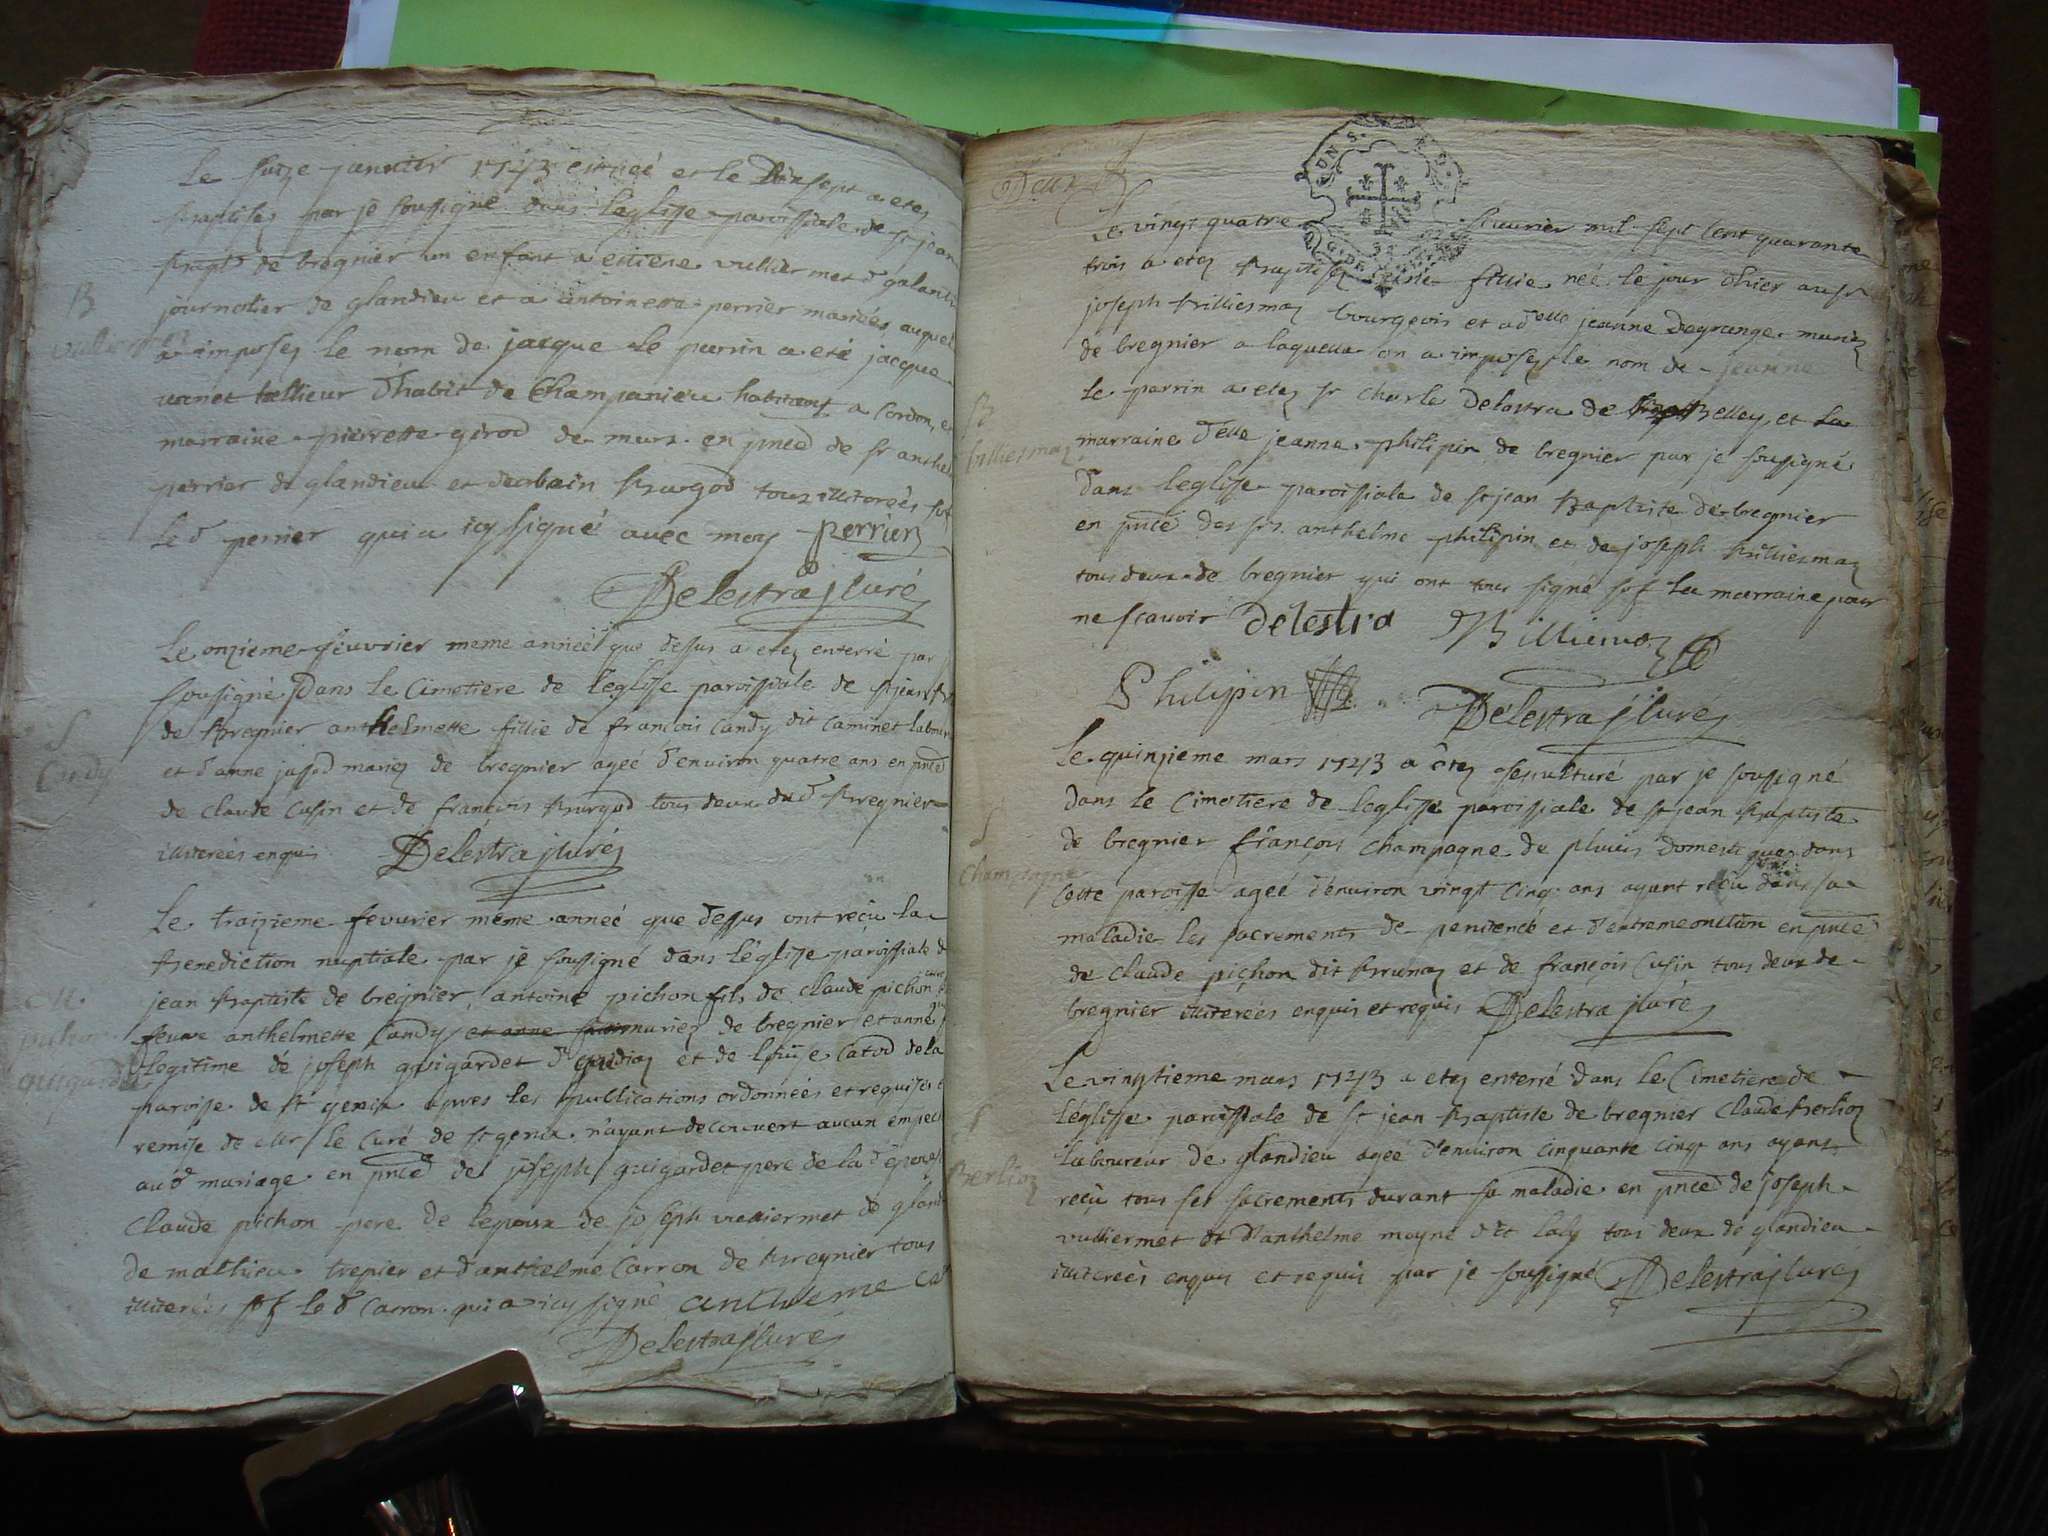 Le seize janvier 1743 est neé et le Dixsept a etes
Baptises par je soussigné dans l'eglisse paroissiale de st jean
Bapt^e de bregnier un enfant a etiene vulliermet d^t galant
B
journalier de glandieu et a antoinette perrier mariées auquel
a imposes le nom de jacque le parrin a eté jacque
tallieur d'habit de Champanieu habitant a Cordon, et
marraine pierrette girod de murs en pnce de sr anthel
perrier de glandieu et durbain Burgod tous illiterées sof
le d perrier qui a icy signé avec moy perrier
Delestra j curé
Le onzieme feuvrier meme anneé que dessus a etez enterré par j
soussigné Dans le Cimetiere de l'eglisse paroissiale de st jean B
S
Candy
de Bregnier anthelmette fillie de francois Candy dit caminet labour
et d'anne jussod mariez de bregnier ageé d'environ quatre ans en pnce
de claude Cusin et de francois Burgod tous deux dud Bregnier
illiterées enquis Delestra j curé
Le traizieme fevurier méme anneé que dessus ont reçu la
Benediction nuptiale par je soussigné dans l'église paroissiale d
jean Baptiste de bregnier antoine pichon fils de claude pichon
M.
pichon
guigardet
feuue anthelmette Candy et anne mariez de bregnier et anne
legitime de joseph guigardet d et de Catod de la
paroisse de st genix apres les publications ordonnées et requises
remise de mr le Curé de st genix n'ayant decouvert aucun empec
aud mariage en pnce de joseph guigardet pere de la d epouse
Claude pichon pere de lepoux de joseph vulliermet de gland
de mathieu trepier et d'anthelme Carron de Bregnier tous
illiterées sof le d Carron qui a icy signé anthelme Ca
Delestra j curé
Deux
Le vingt quatre feuurier mil sept cent quarante
trois a etez Baptisez fillie neé le jour d'hier au sr
joseph Billiemaz bourgeois et a d^elle jeanne Degrange mariez
de bregnier a laquelle on a imposez le nom de jeanne
le parrin a etez sr Charle Delestra de Belley et la
B
billiemaz
marraine d^elle jeanne philipin de bregnier par je soussigné
Dans l'eglisse paroissiale de st jean Baptiste de bregnier
en pnce des srs anthelme philipin et de joseph Billiemaz
tous deux de bregnier qui ont tous signé sof la marraine pour
ne scavoir Delestra Billiemaz
Philipin Delestra j curé
Le quinzieme mars 1743 a êtez sepulturé par je soussigné
dans le Cimetiere de l'eglisse paroissiale de st jean Baptiste
S
Champagne
de bregnier françois Champagne de pluuis domestique dans
cette paroisse ageé d'environ vingt cinq ans ayant reçu dans sa
maladie les sacrements de penitence et d'extremeonction en pnce
de claude pichon dit Brunaz et de françois Cusin tous deux de
bregnier illiterées enquis et requis Delestra j curé
Le vingtieme mars 1743 a etez enterré dans le Cimetiere de
l'églisse paroissiale de st jean Baptiste de bregnier Claude Berlioz
S
Berlioz
laboureur de glandieu ageé d'environ cinquante cinq ans ayant
reçu tous ses sacrements durant sa maladie en pnce de joseph
vulliermet et d'anthelme moyne dit laly tous deux de glandieu
illiterées enquis et requis par je soussigné Delestra j curé